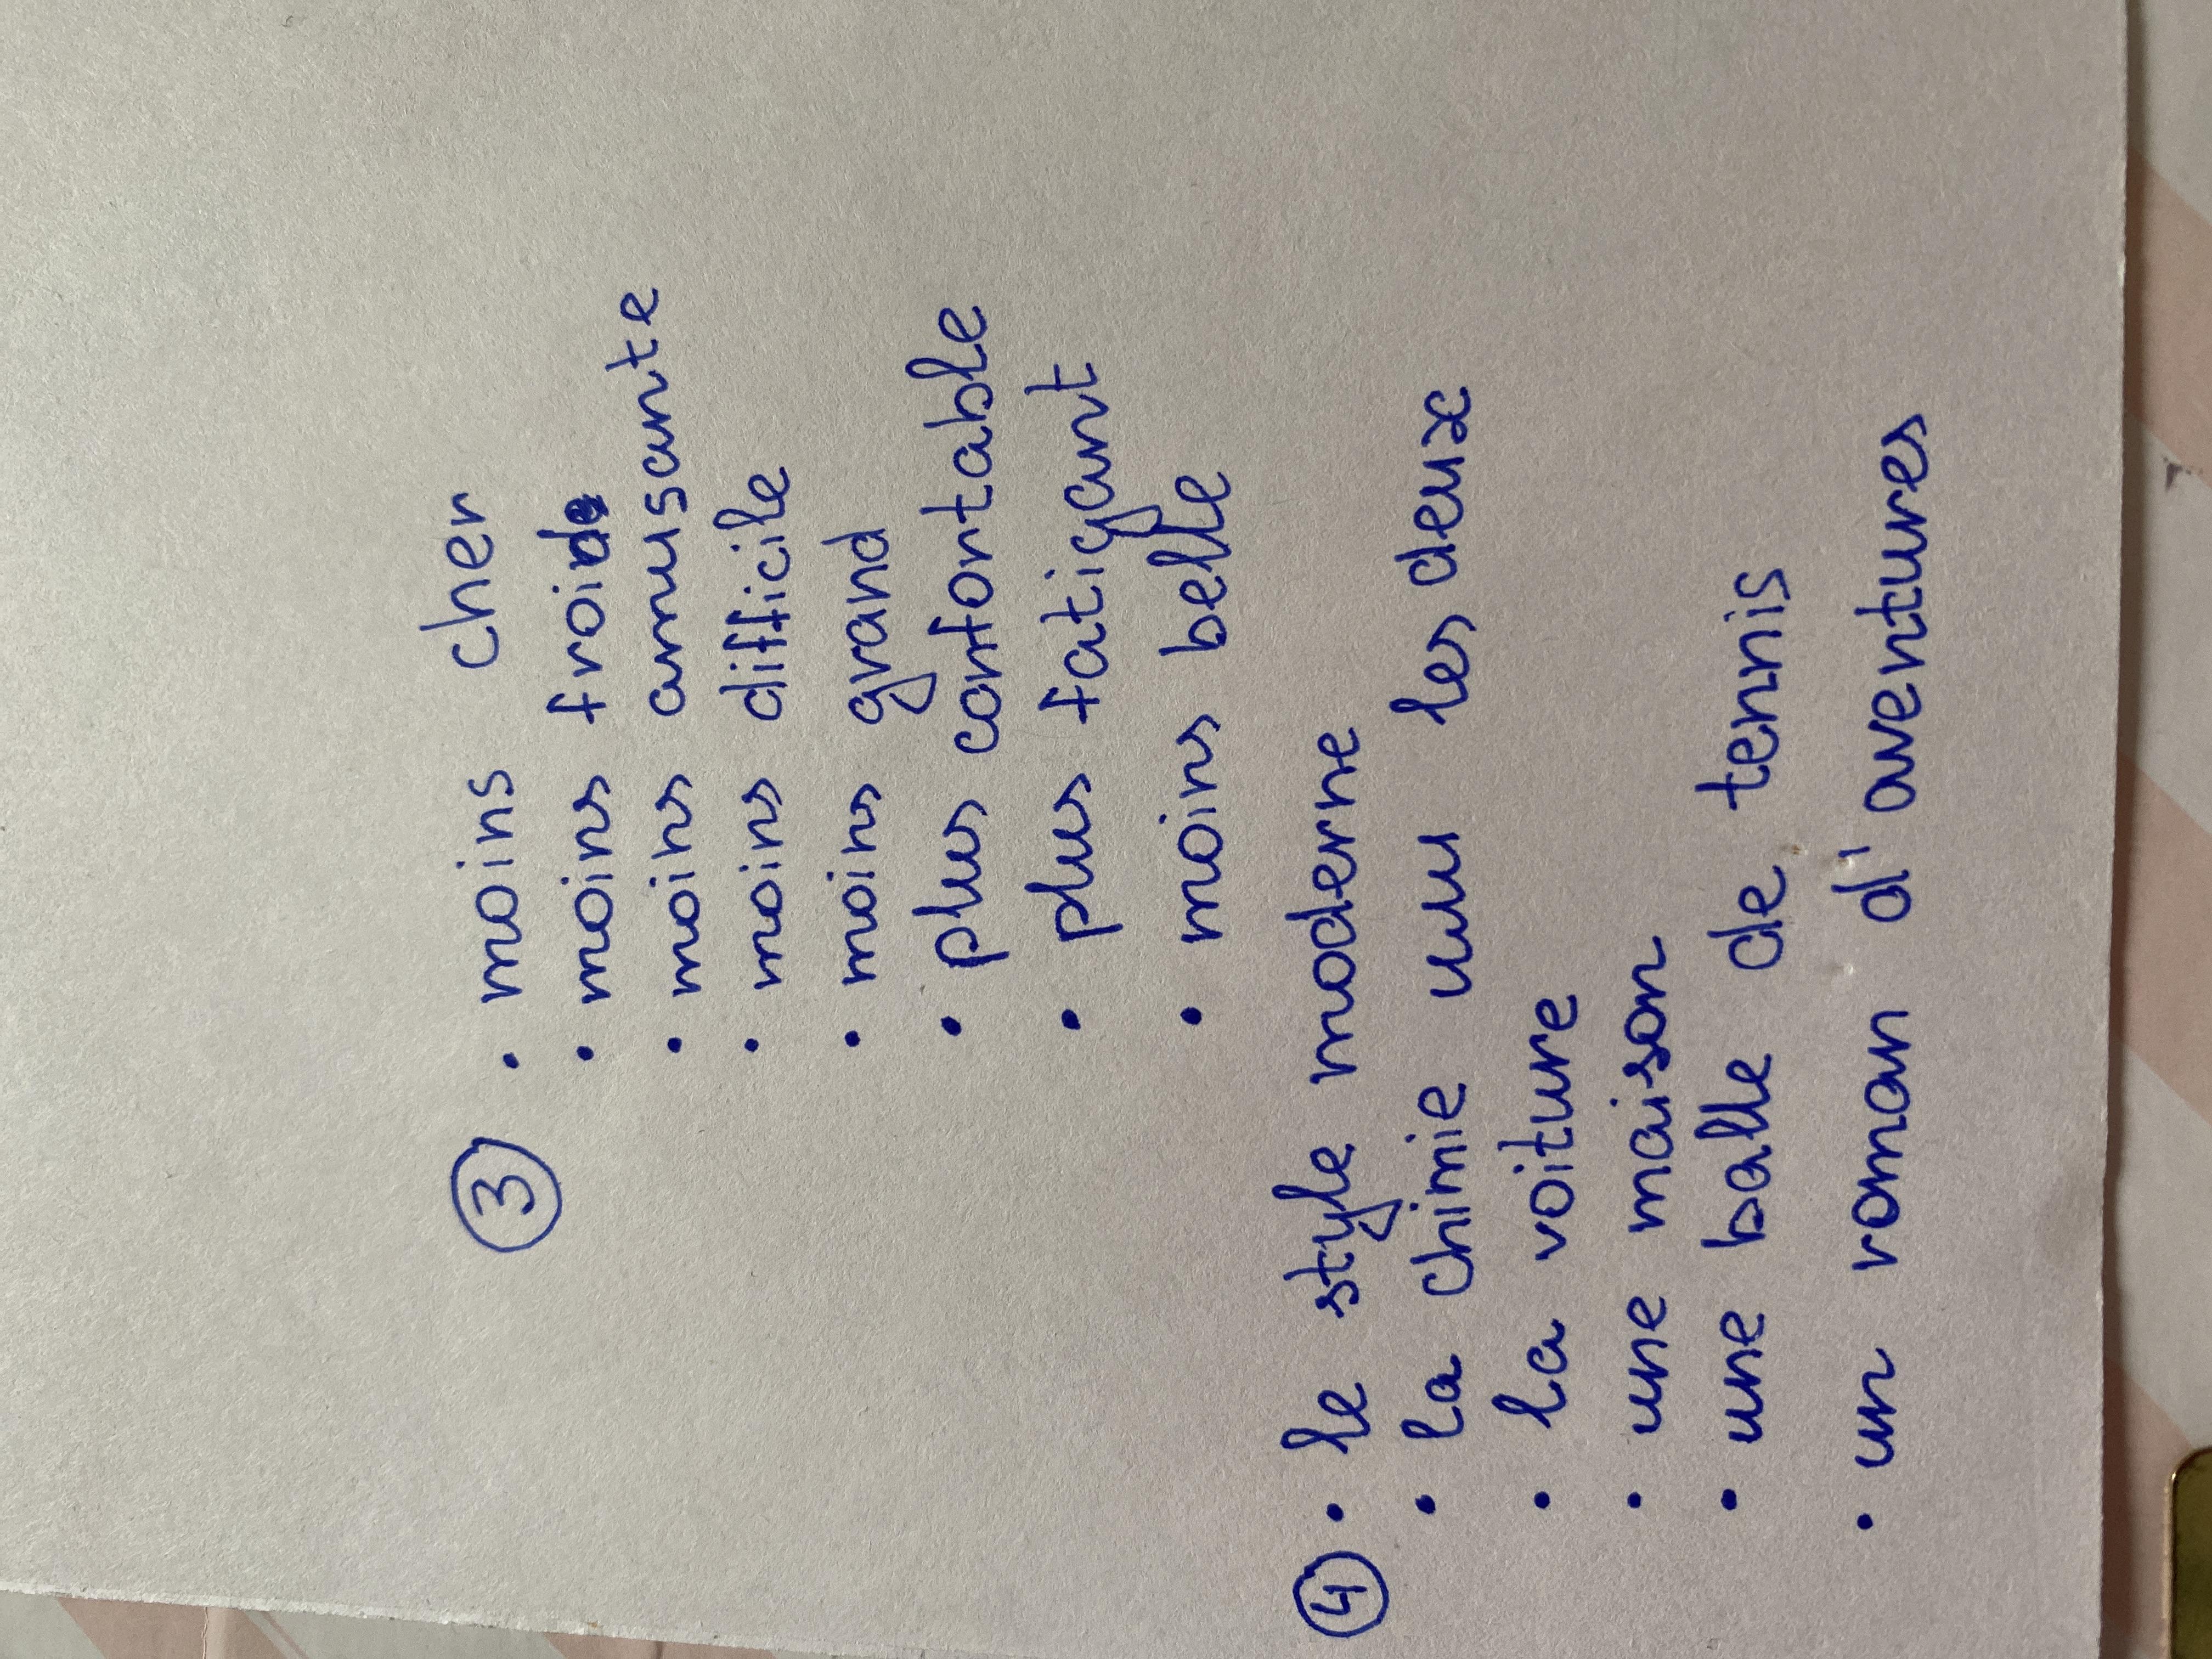 ③ • moins cher
• moins froide
• moins amusante
• moins difficile
• moins grand
• plus confortable
• plus fatigant
• moins belle
④ • le style moderne
• la chimie les deux
• la voiture
• une maison
• une balle de tennis
• un roman d'aventures